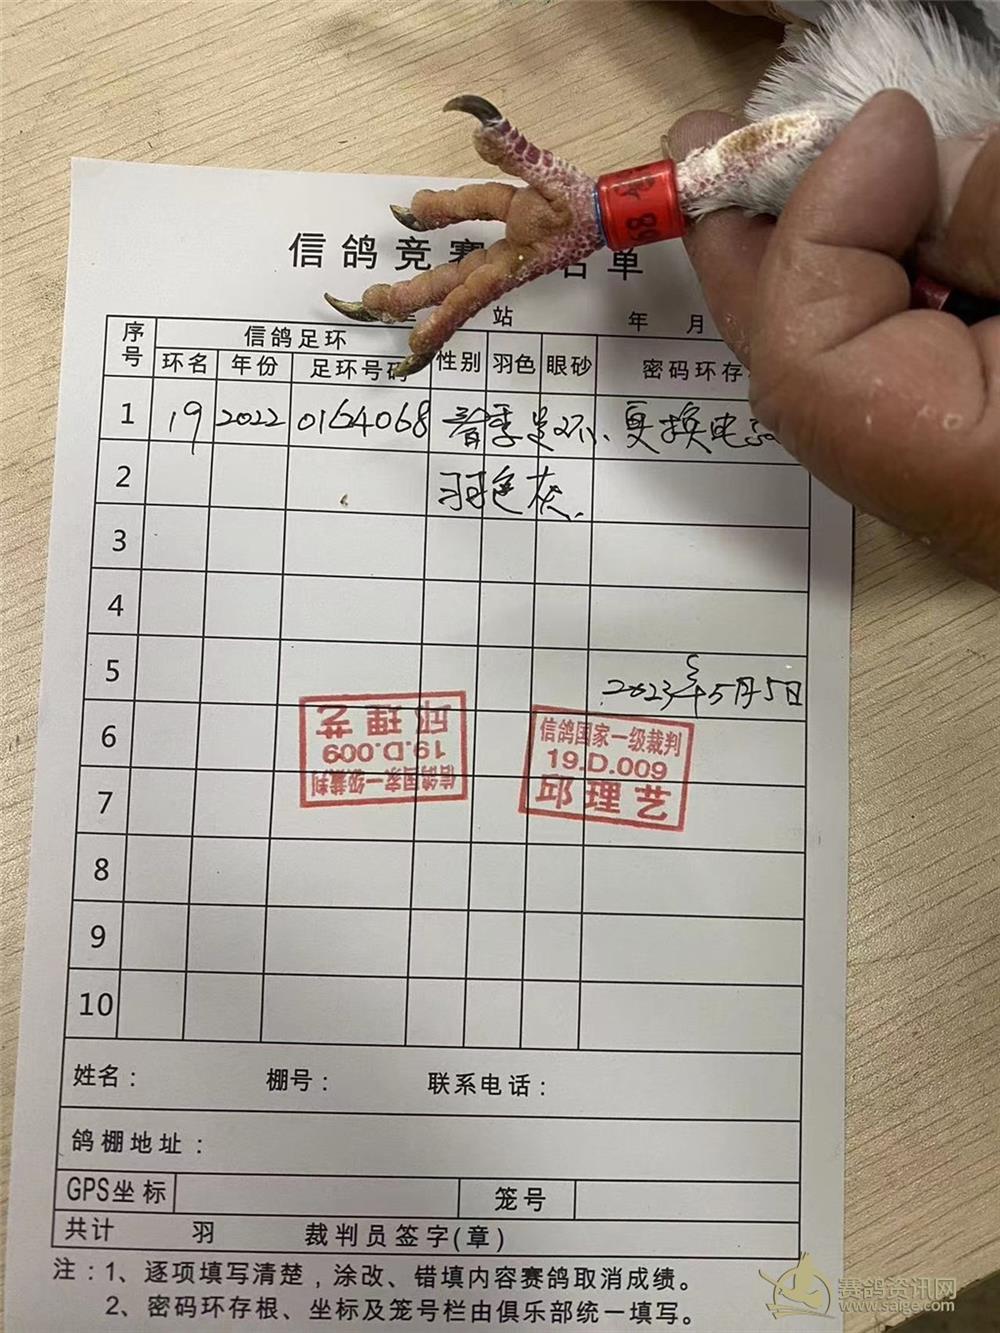 信鸽竞赛 名单
站 年 月
序号 信鸽足环 性别 羽色 眼砂 密码环存
环名 年份 足环号码
1 19 2022 0164068 春季足环、更换电
2 羽色灰、
3
4
5 2023年5月5日
6
7
8
9
10
信鸽国家一级裁判
19.D.009
邱理艺
信鸽国家一级裁判
19.D.009
邱理艺
姓名： 棚号： 联系电话：
鸽棚地址：
GPS坐标 笼号
共计 羽 裁判员签字(章)
注：1、逐项填写清楚，涂改、错填内容赛鸽取消成绩。
2、密码环存根、坐标及笼号栏由俱乐部统一填写。
68
赛鸽资讯网
www.saige.com